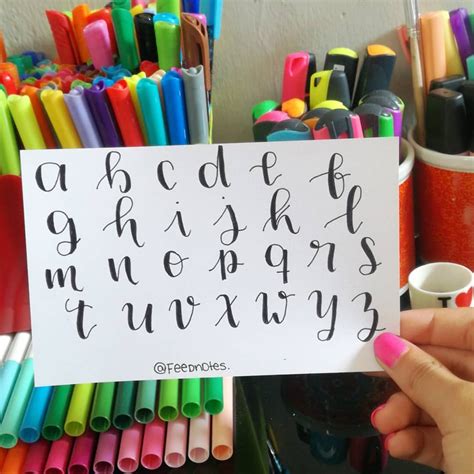 a b c d e f
g h i j k l
m n o p q r s
t u v x w y z
@FeedNotes.
I